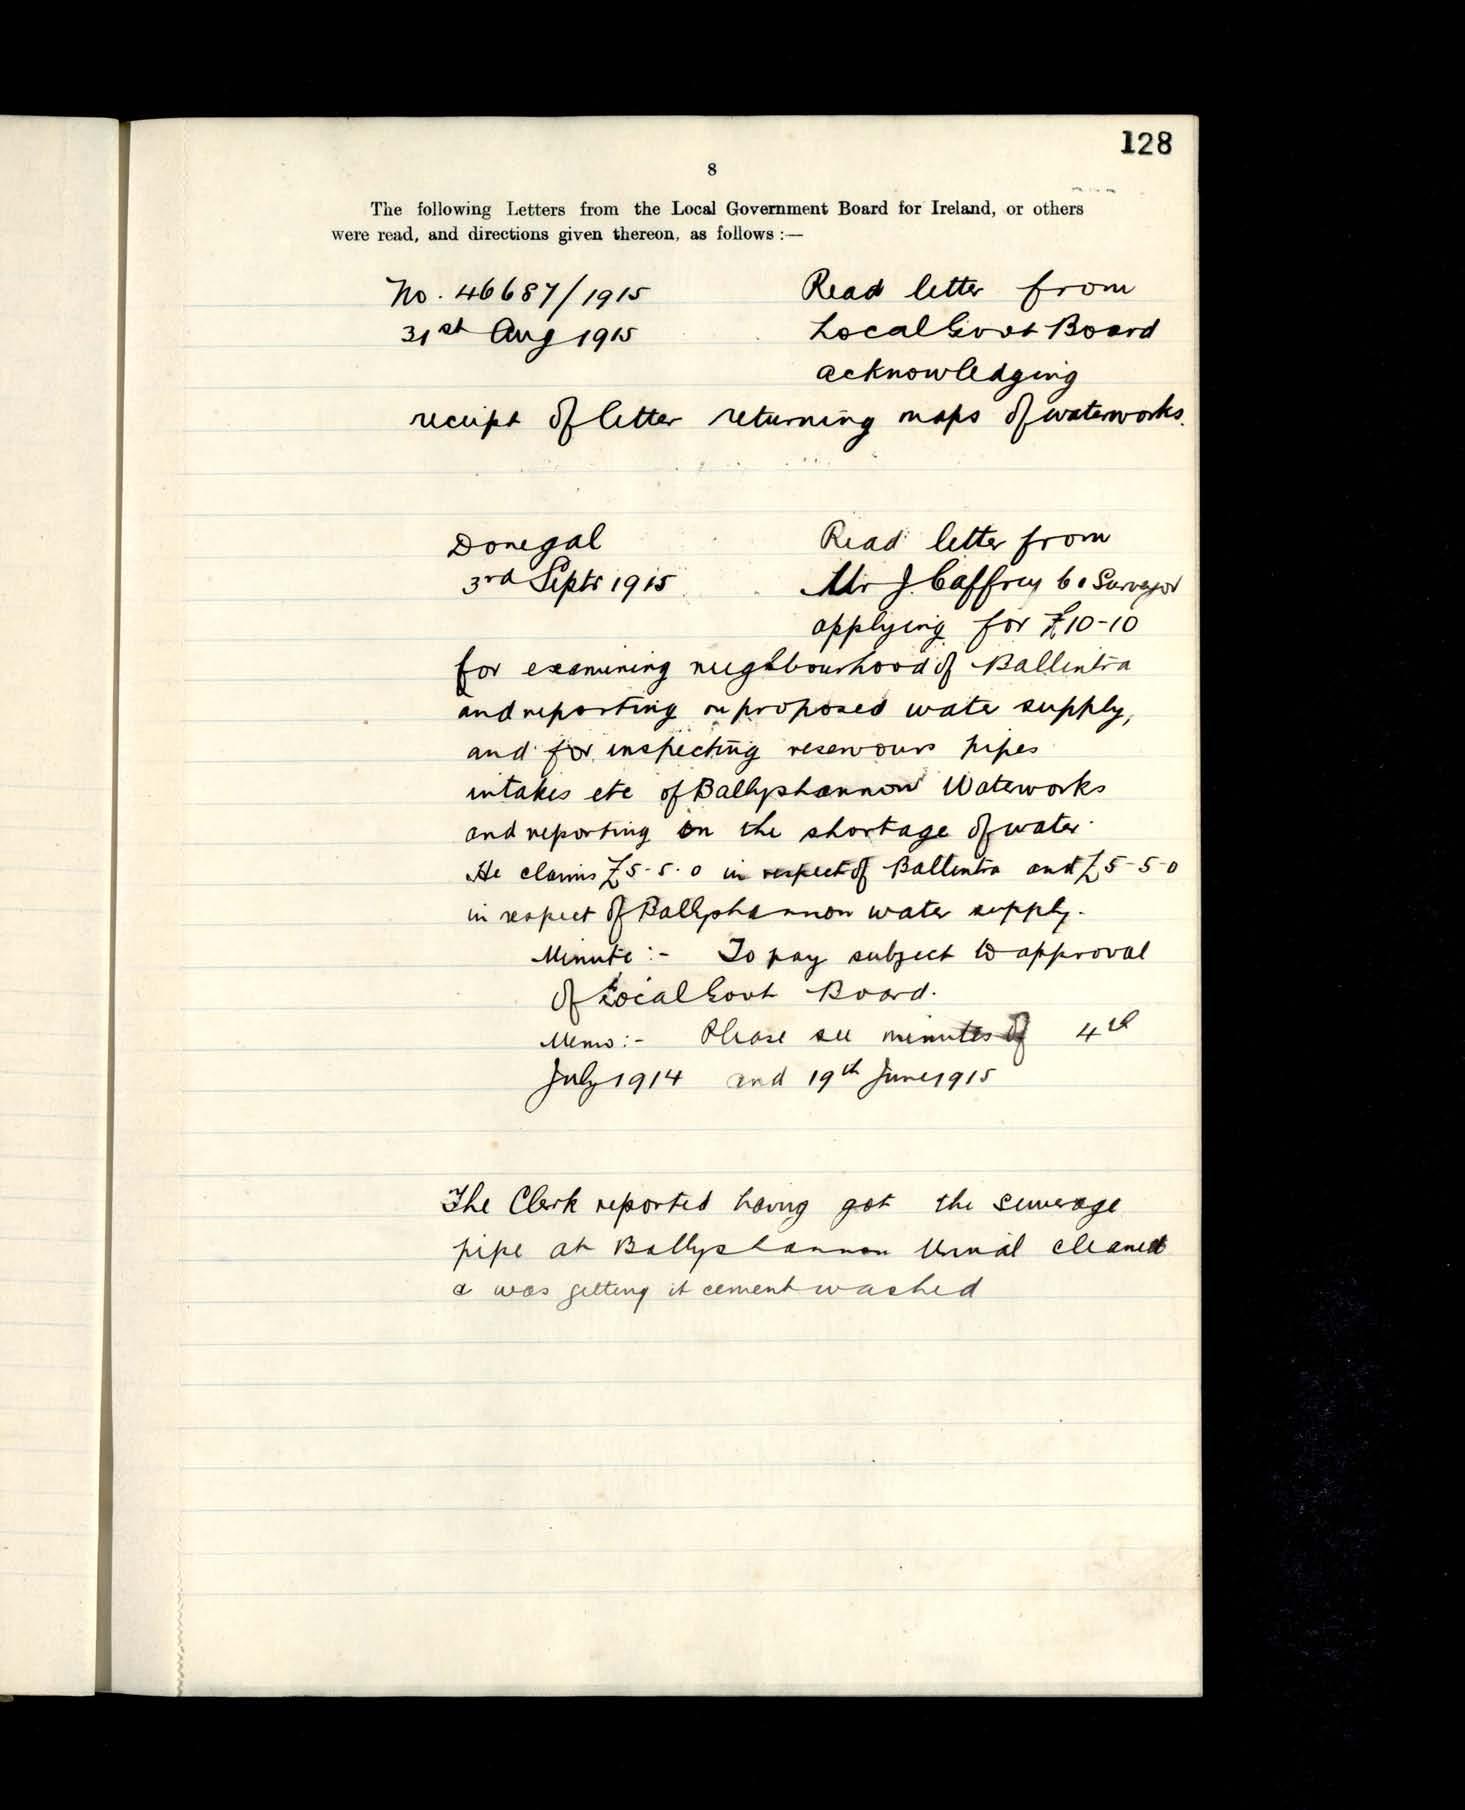 128
8
The following Letters from the Local Government Board for Ireland, or others
were read, and directions given thereon, as follows :—
No. 46687/1915 Read letter from
31st Aug 1915 Local Govt Board
acknowledging
receipt of letter returning maps of waterworks.
Donegal Read letter from
3rd Septr 1915 Mr J. Caffrey Co Surveyor
applying for £10-10
for examining neighbourhood of Ballintra
and reporting on proposed water supply,
and for inspecting reservours pipes
intakes etc of Ballyshannon Waterworks
and reporting on the shortage of water.
He claims £5-5-0 in respect of Ballintra and £5-5-0
in respect of Ballyshannon water supply.
Minute :- To pay subject to approval
of Local Govt Board.
Memo :- Please see minutes of 4th
July 1914 and 19th June 1915
The Clerk reported having got the sewerage
pipe at Ballyshannon Urinal cleaned
& was getting it cement washed